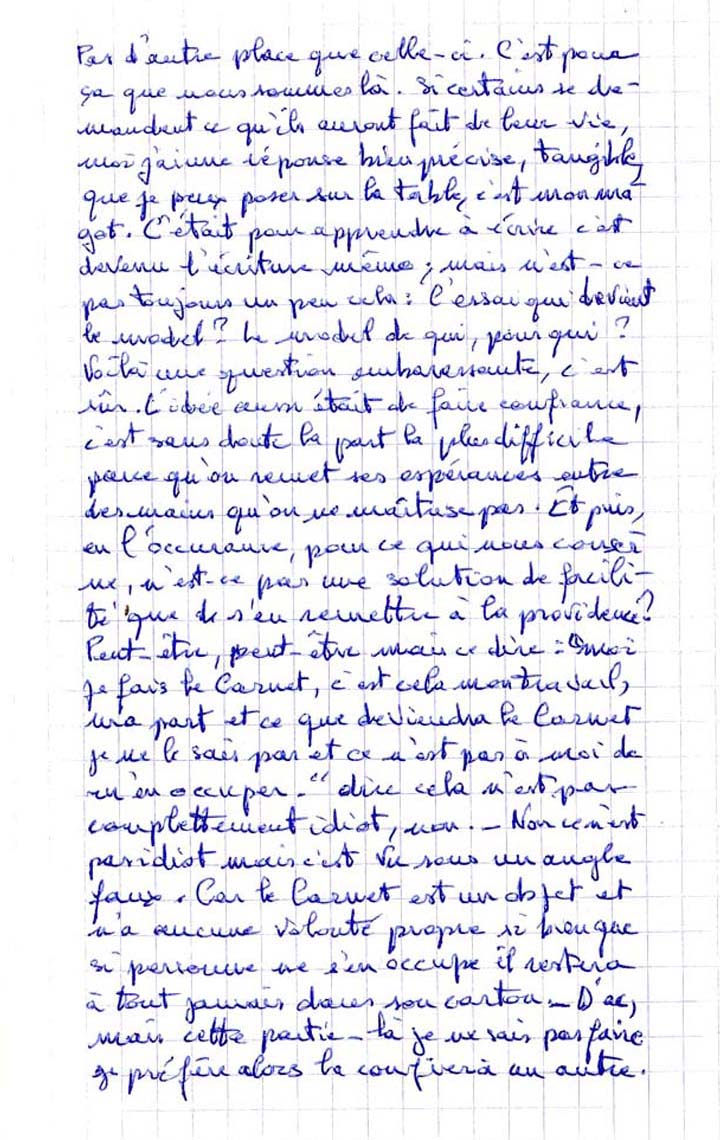 Pas d'autre place que celle-ci. C'est pour
ça que nous sommes là. Si certains se de-
mandent ce qu'ils auront fait de leur vie,
moi j'ai une réponse bien précise, tangible,
que je peux poser sur la table, c'est mon ma-
got. C'était pour apprendre à écrire c'est
devenu l'écriture même ; mais n'est-ce
pas toujours un peu cela : l'essai qui devient
le model ? Le model de qui, pour qui ?
Voilà une question embarassante, c'est
sûr. L'idée aussi était de faire confiance,
c'est sans doute la part la plus difficile
parce qu'on remet ses espérances entre
des mains qu'on ne maîtrise pas. Et puis,
en l'occurance, pour ce qui nous concer
ne, n'est-ce pas une solution de facili-
té que de s'en remettre à la providence ?
Peut-être, peut-être mais ce dire : "moi
je fais le Carnet, c'est cela mon travail,
ma part et ce que deviendra le Carnet
je ne le sais pas et ce n'est pas à moi de
m'en occuper." dire cela n'est pas
complettement idiot, non. - Non ce n'est
pas idiot mais c'est vu sous un angle
faux. Car le Carnet est un objet et
n'a aucune volonté propre si bien que
si personne ne s'en occupe il restera
à tout jamais dans son carton. - D'ac,
mais cette partie-là je ne sais pas faire
je préfère alors la confier à un autre.